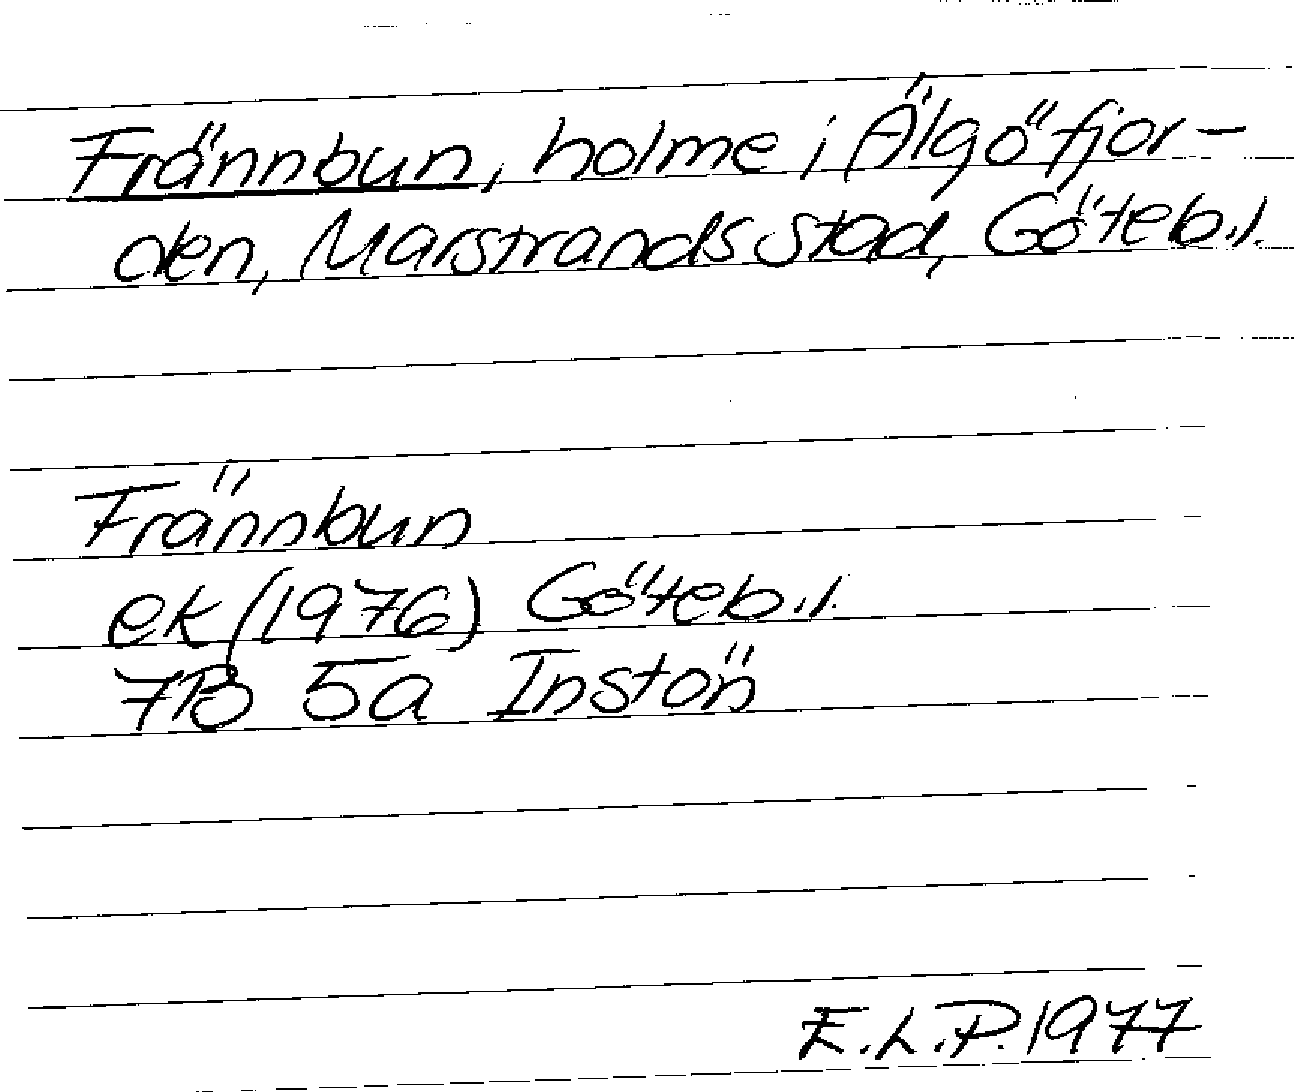 Frännbun, holme i Älgöfjor-
den, Marstrands stad, Göteb.l.
Frännbun
ek (1976) Göteb.l.
7B 5a Instön
E.L.P. 1977